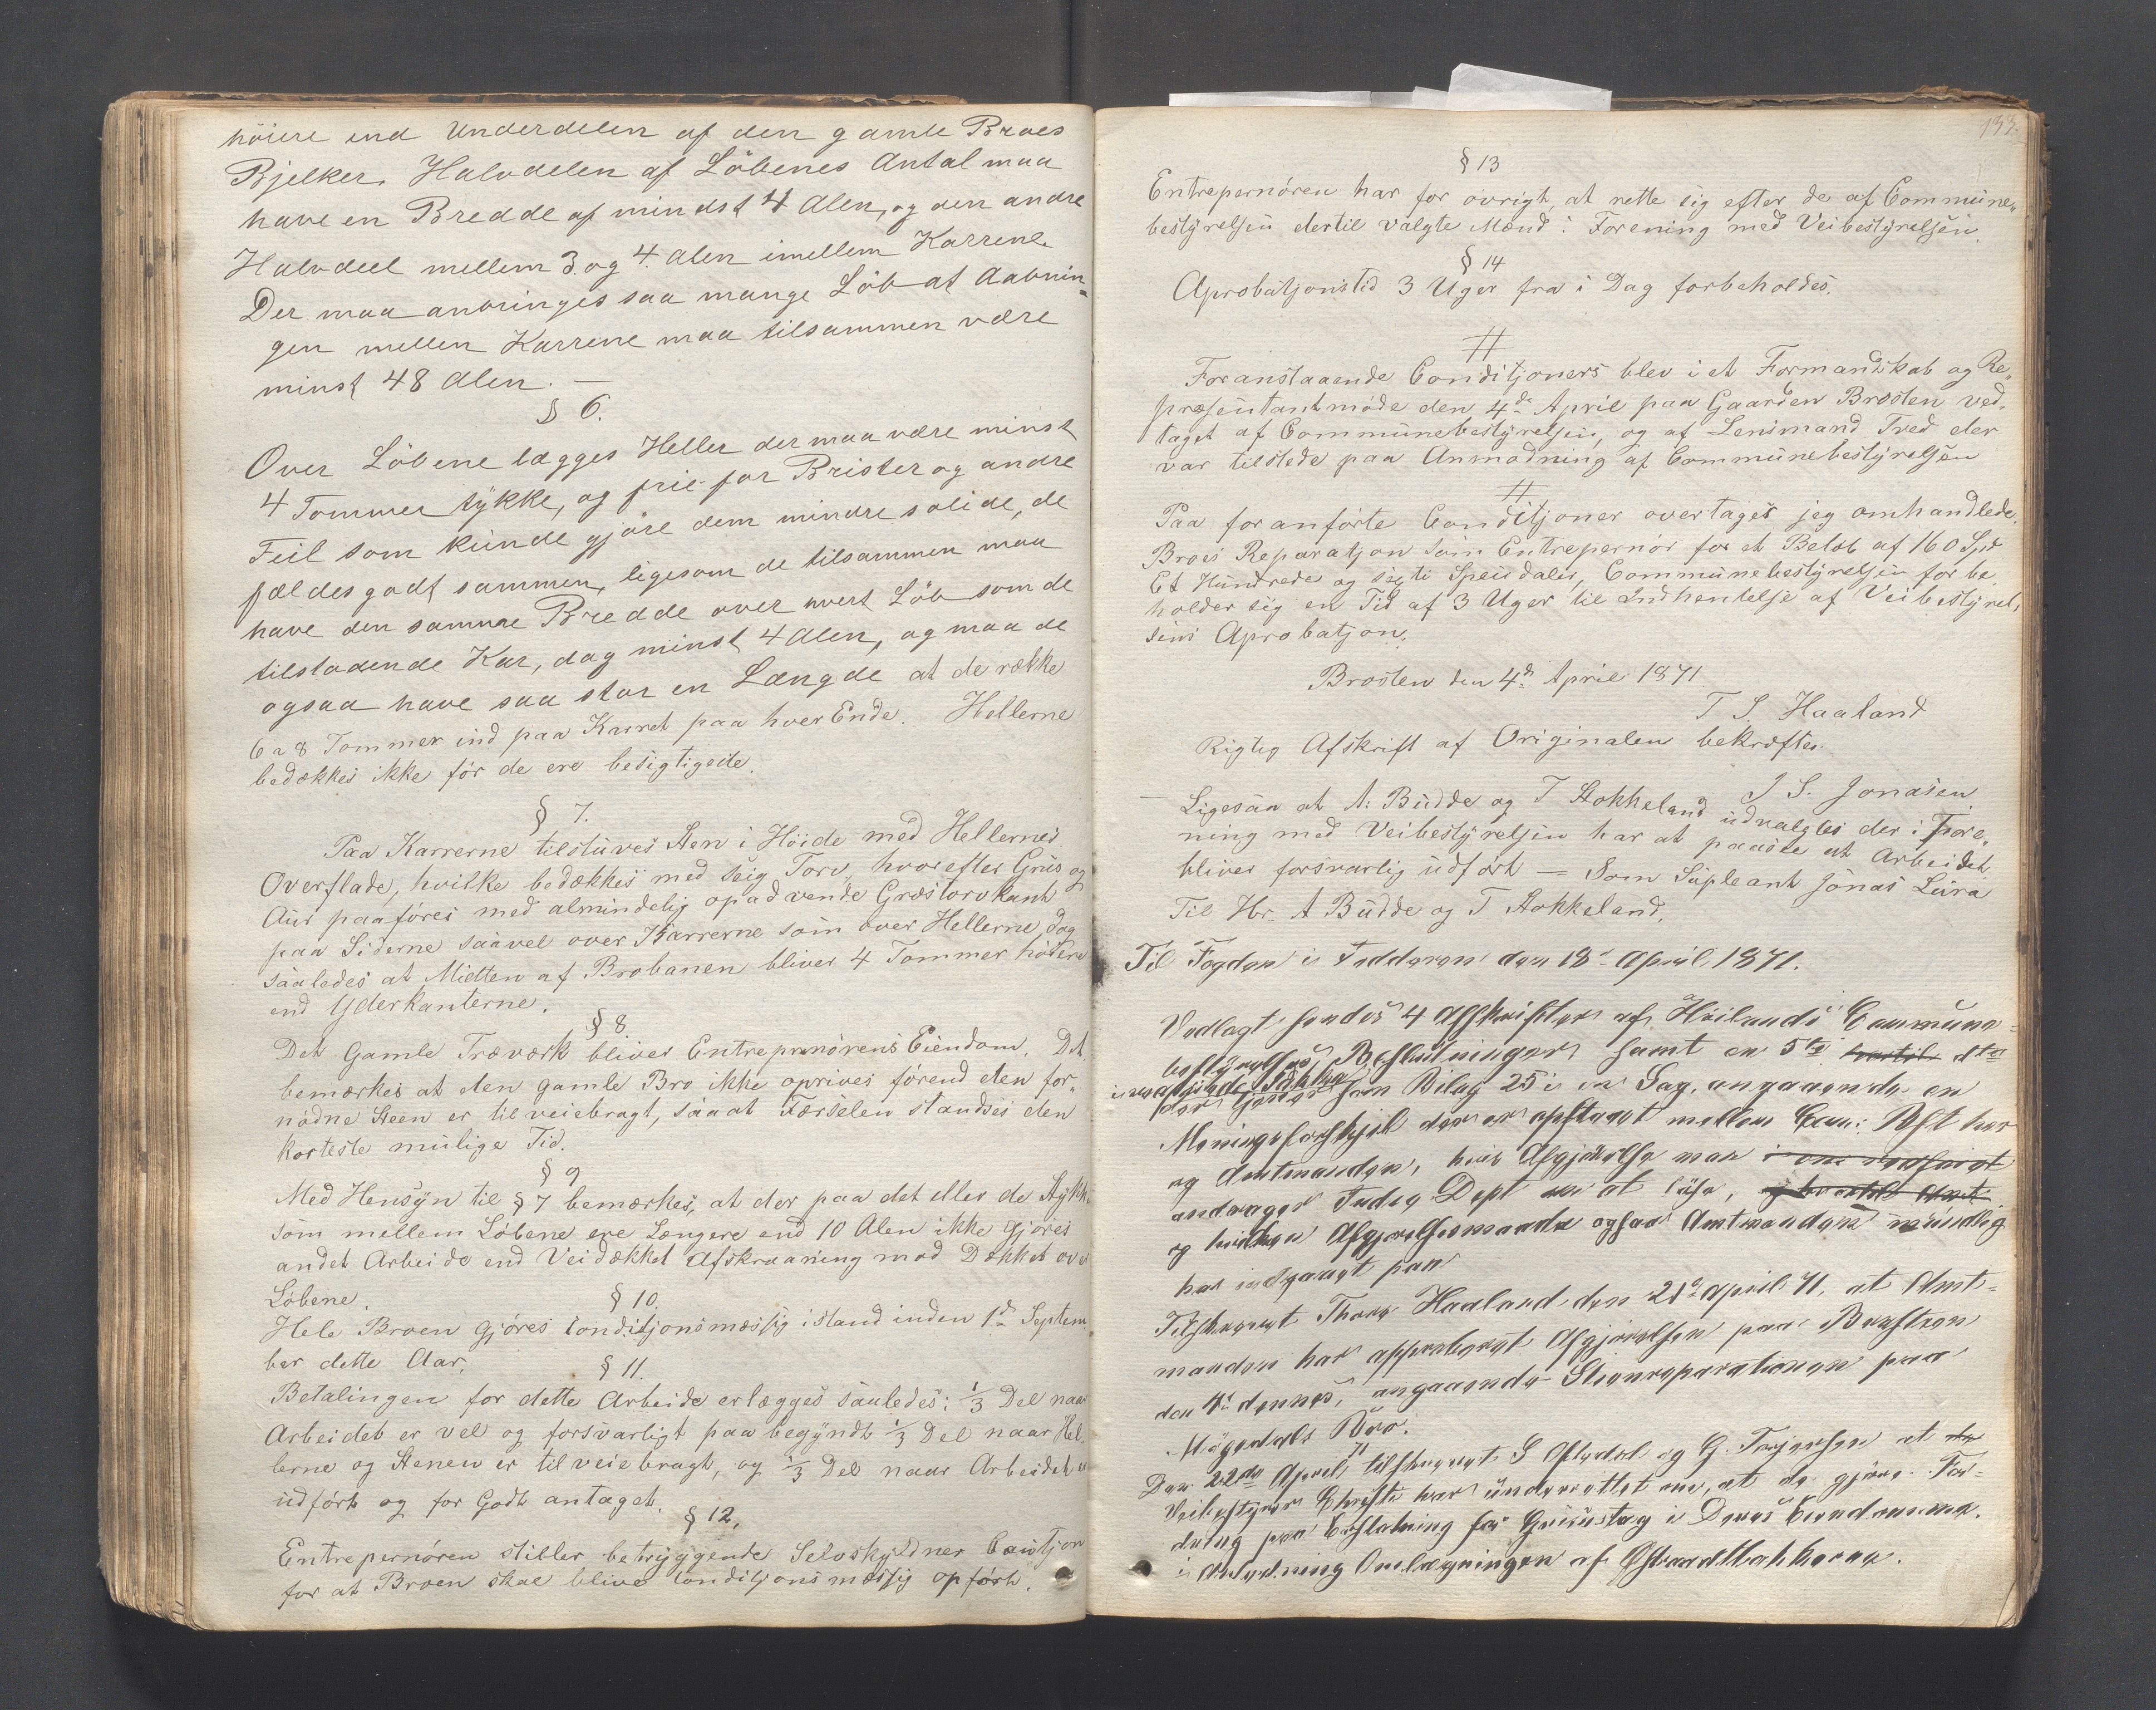 höiere end Underdelen af den gamle Broes
Bjelker. Halvdelen af Löbenes Antal maa
have en Bredde af mindst 4 Alen, og den andre
Halvdeel mellem 3 og 4 Alen imellem Karrene.
Der maa anbringes saa mange Löb at Aabnin-
gen mellem Karrene maa tilsammen være
minst 48 Alen. —
§ 6.
Over Löbene lægges Heller der maa være minst
4 Tommer tykke, og frie for Brister og andre
Feil som kunde gjöre dem mindre solide, de
fældes godt sammen, ligesom de tilsammen maa
have den samme Bredde over hvert Löb som de
tilstodende Kar, dog minst 4 Alen, og maa de
ogsaa have saa stor en Længde at de række
6 a 8 Tommer ind paa Karret paa hver Ende. Hellerne
bedækkes ikke för de ere besigtigede.
§ 7.
Paa Karrerne tilstuves Sten i Höide med Hellernes
Overflade, hvilke bedækkes med seig Torv, hvorefter Grus og
Aur paaföres med almindelig opadvende Græstorvkant
paa Siderne saavel over Karrerne som over Hellerne, dog
saaledes at Midten af Brobanen bliver 4 Tommer höiere
end Yderkanterne.
§ 8.
Det Gamle Træværk bliver Entreprenörens Eiendom. Det
bemærkes at den gamle Bro ikke oprives förend den for-
nödne Steen er tilveiebragt, saa at Færselen standses den
korteste mulige Tid.
§ 9
Med Hensyn til § 7 bemærkes, at der paa det eller de Stykk
som mellem Löbene ere Længere end 10 Alen ikke gjöres
andet Arbeide end Veidækket Afskraaning med Dækket over
Löbene.
§ 10.
Hele Broen gjöres Conditjonsmæssig istand inden 1de Septem
ber dette Aar.
§ 11.
Betalingen for dette Arbeide erlægges saaledes: 1/3 Del naar
Arbeidet er vel og forsvarligt paabegyndt 1/3 Del naar Hel
lerne og Stenen er tilveiebragt, og 1/3 Del naar Arbeidet
udfört og for Godt antaget.
§ 12.
Entrepernören stiller betryggende Selvskyldner Cautjon
for at Broen skal blive Conditjonsmæssig opfört.
133.
§ 13
Entrepernören har for övrigt at rette sig efter de af Commune„
bestyrelsen dertil valgte Mænd i Forening med Veibestyrelsen.
§ 14
Aprobatjonstid 3 Uger fra i Dag forbeholdes.
Foranstaaende Conditjoners blev i et Formandskab og Re„
præsentantmöde den 4de April paa Gaarden Brosten ved-
taget af Communebestyrelsen, og af Lensmand Tved der
var tilstede paa Anmodning af Communebestyrelsen
Paa foranförte Conditjoner overtages jeg omhandlede
Broes Reparatjon som Entrepernör for et Belöb af 160 Spd
Et Hundrede og segsti Speisdaler, Communebestyrelsen for be
holder sig en Tid af 3 Uger til Indhentelse af Veibestyrel,
sens Aprobatjon.
Brosten den 4de April 1871
T S. Haaland
Rigtig Afskrift af Originalen bekræftes.
J S. Jonasen
— Ligesaa at A: Budde og T Stokkeland udvalgtes der i Fore„
ning med Veibestyrelsen har at paasee at Arbeidet
bliver forsvarlig udfört — Som Supleant Jonas Lura
Til Hr. A Budde og T Stokkeland.
Til Fogden i Jedderen den 18de April 1871.
Vedlagt sendes 4 Afskrifter af Höilands Commune-
bestyrelses Beslutninger samt en 5te dto
som Bilag 25 i en Sag, angaaende en
Meningsforskjel der er opstaaet mellem Com: Best her
og Amtmanden, hvis Afgjörelse man
andrager Indre Dept om at löse,
og hvilken Afgjörelsesmaade ogsaa Amtmanden mündtlig
har indgaaet paa
Tilskrevet Thore Haaland den 21de April 71, at Amt-
manden har approberet Afgjörelsen paa Brosten
den 4de dennes, angaaende Steenreparationen paa
Mögedals Bro.
Den 22de April 71 tilskrevet S Asledal og G. Torjersen at
Veibestyrer Christi har underrettet om, at de gjöre For-
dring paa Erstatning for Gruustag i Deres Eiendomme.
i Anledning Omlægningen af Osbaadbakkerne.